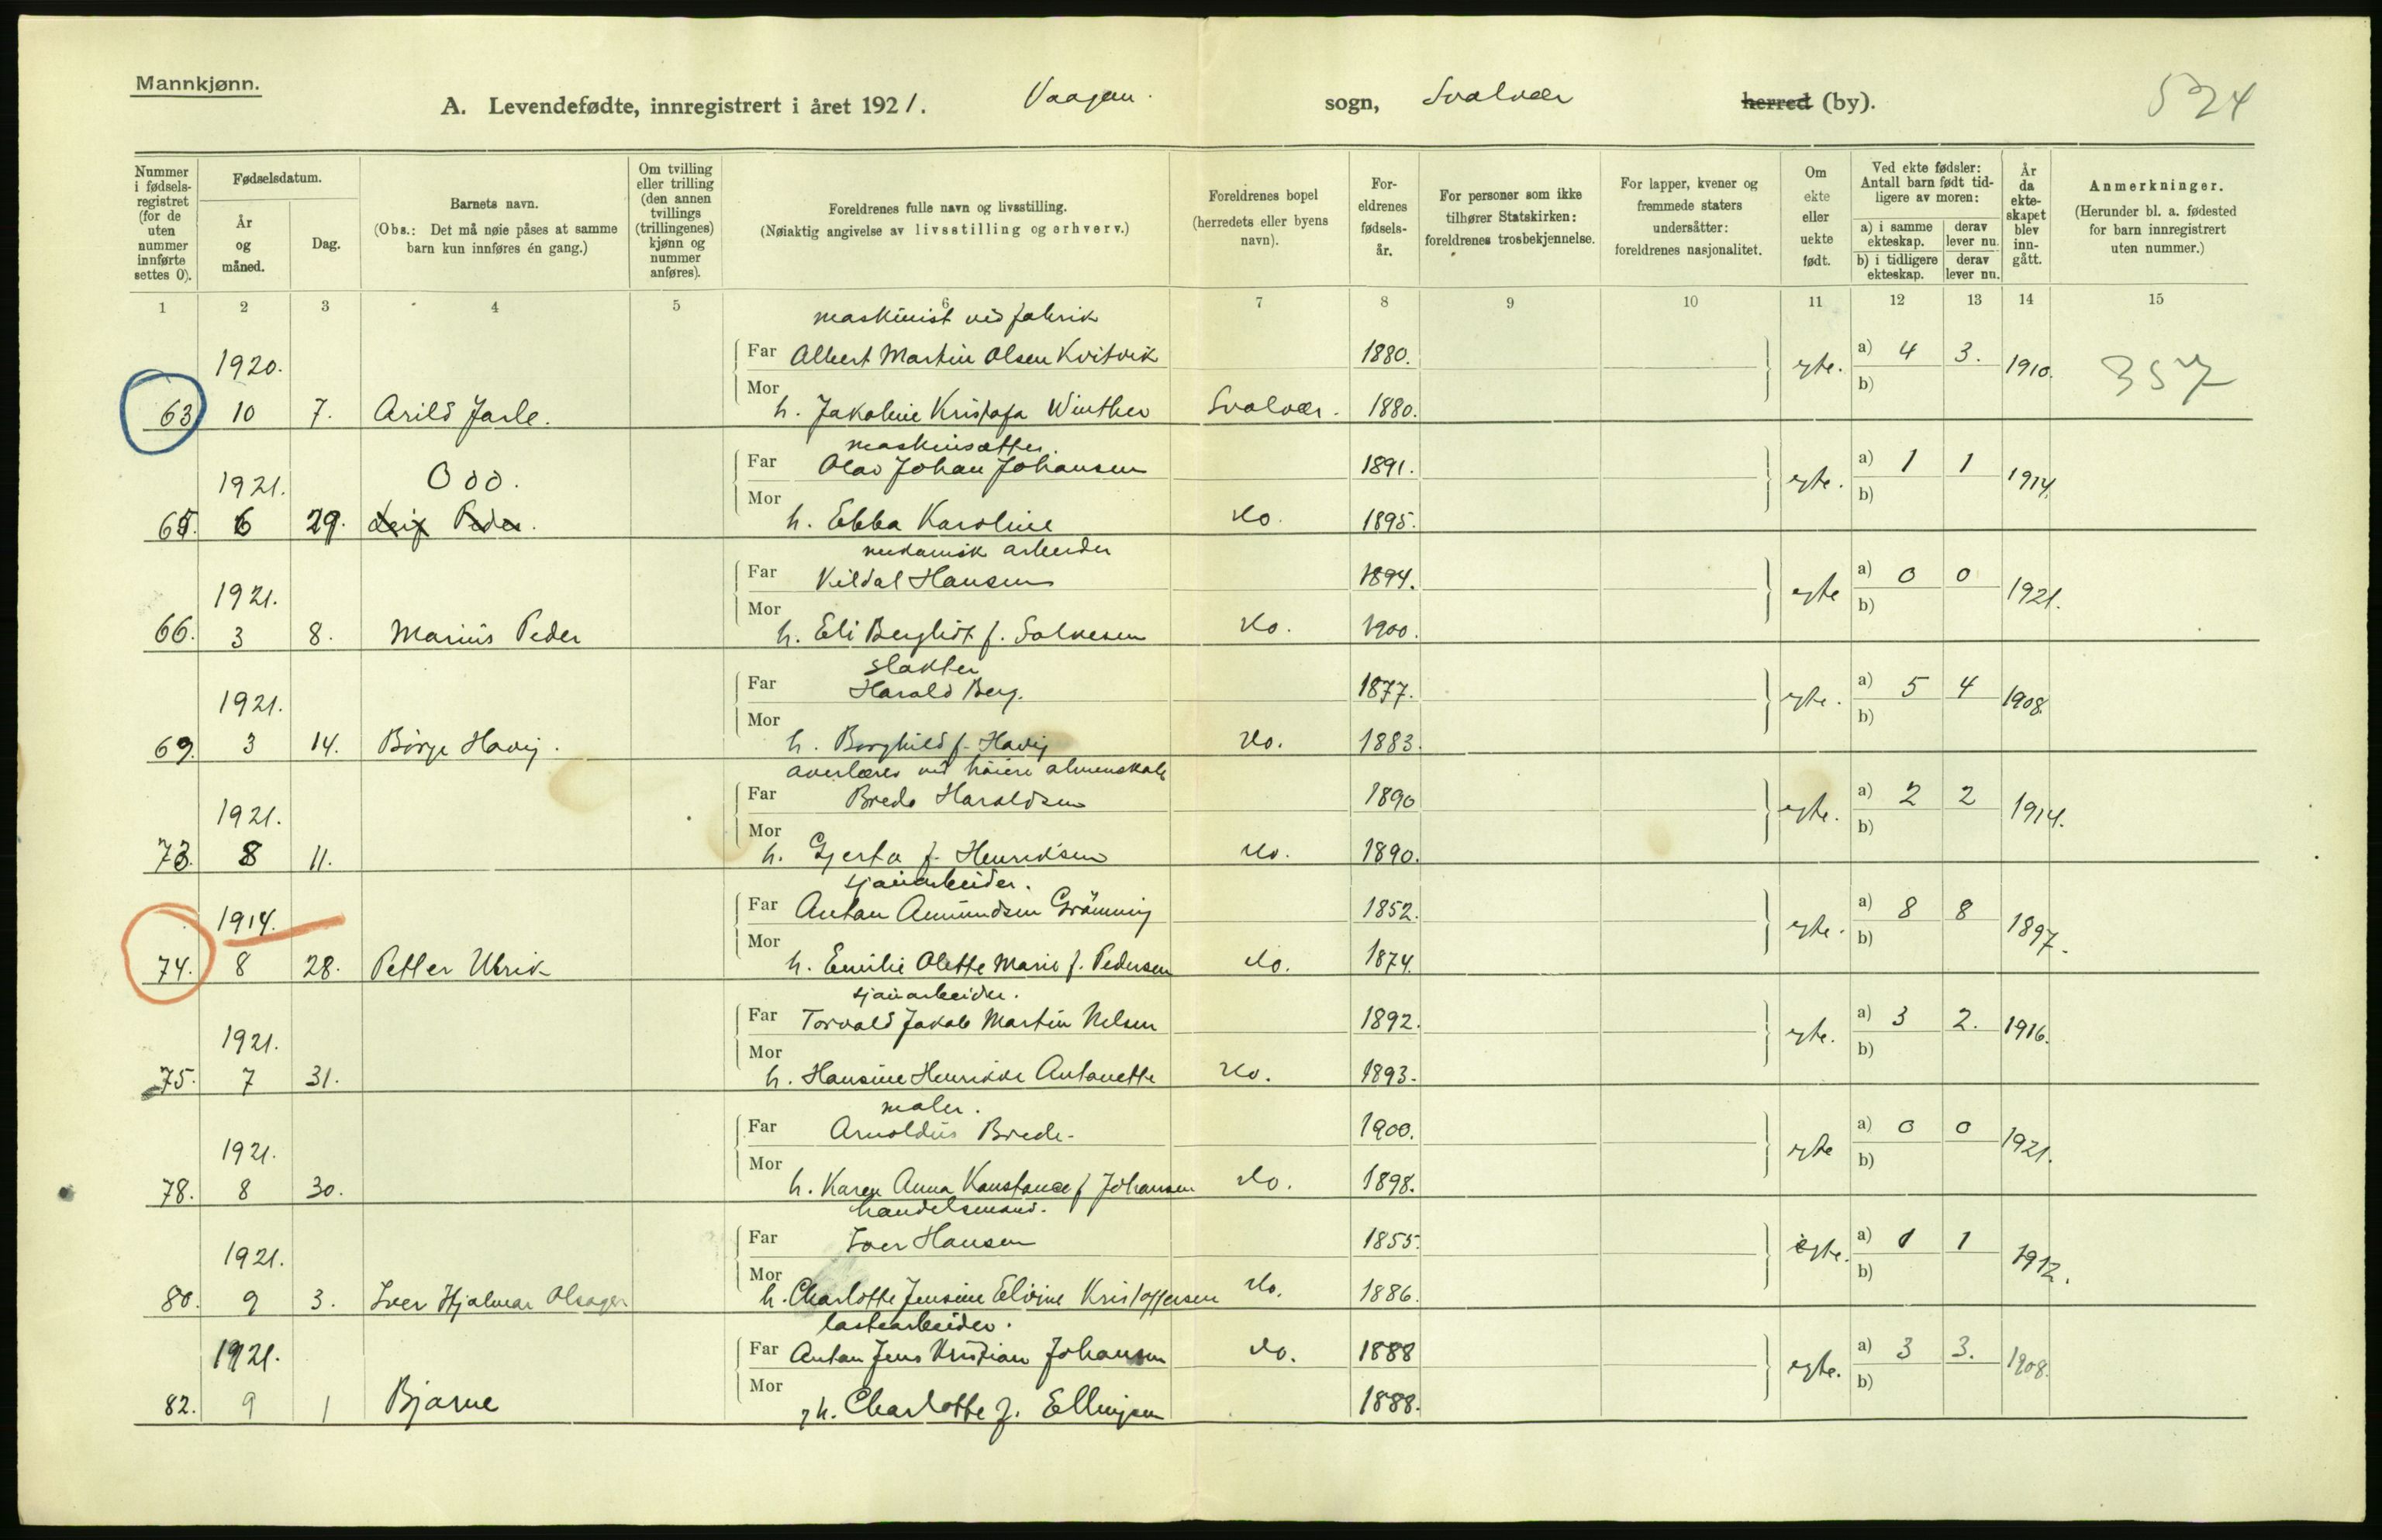 Mannkjønn.
A. Levendefødte, innregistrert i året 1921. Vaagan. sogn, Svolvær herred (by). 524
Nummer i fødselsregistret (for de uten nummer innførte settes 0).
Fødselsdatum.
År og måned.
Dag.
Barnets navn.
(Obs.: Det må nøie påses at samme barn kun innføres én gang.)
Om tvilling eller trilling (den annen tvillings (trillingenes) kjønn og nummer anføres).
Foreldrenes fulle navn og livsstilling.
(Nøiaktig angivelse av livsstilling og erhverv.)
Foreldrenes bopel (herredets eller byens navn).
Foreldrenes fødselsår.
For personer som ikke tilhører Statskirken: foreldrenes trosbekjennelse.
For lapper, kvener og fremmede staters undersåtter: foreldrenes nasjonalitet.
Om ekte eller uekte født.
Ved ekte fødsler: Antall barn født tidligere av moren:
a) i samme ekteskap. derav lever nu.
b) i tidligere ekteskap. derav lever nu.
År da ekteskapet blev inngått.
Anmerkninger.
(Herunder bl. a. fødested for barn innregistrert uten nummer.)
1 2 3 4 5 6 7 8 9 10 11 12 13 14 15
maskinist ved fabrik
1920. Far Albert Martin Olsen Kvitvik 1880. egte. a) 4 3. 1910. 357
63 10 7. Arild Jarle. Mor h. Jakobine Kristofa Winther Svolvær. 1880. b)
maskinsætter.
1921. Odd. Far Olav Johan Johansen 1891. egte. a) 1 1 1914.
65. 6 29. Leif Peder. Mor h. Ebba Karoline do. 1895. b)
mekanisk arbeider
1921. Far Kildal Hansen 1894. egte a) 0 0 1921.
66. 3 8. Marius Peder Mor h. Eli Berglidt f. Salvesen do. 1900. b)
Slakter
1921. Far Harald Berg. 1877. egte. a) 5 4 1908.
69. 3 14. Börge Havig. Mor h. Borghild f. Havig do. 1883. b)
overlærer ved høiere almenskole
1921. Far Brede Haraldsen 1890 egte. a) 2 2 1914.
73. 8 11. Mor h. Gjerta f. Henriksen do. 1890. b)
sjauarbeider.
1914. Far Anton Amundsen Grönning 1852. egte. a) 8 8 1897.
74. 8 28. Petter Ulrik Mor h. Emilie Olette Marie f. Pedersen do. 1874. b)
sjauarbeider.
1921. Far Torvald Jakob Martin Nelsen 1892. egte. a) 3 2. 1916.
75. 7 31. Mor h. Hansine Henrikke Antonette do. 1893. b)
maler.
1921. Far Arnoldus Brede 1900. egte a) 0 0 1921.
78. 8 30. Mor h. Karen Anna Konstance f Johansen do. 1898. b)
handelsmand.
1921. Far Iver Hansen 1855. egte. a) 1 1 1912.
80. 9 3. Iver Hjalmar Mor h. Charlotte Jensine Elvine Kristoffersen do. 1886. b)
lastearbeider.
1921. Far Anton Jens Kristian Johansen do. 1888 egte. a) 3 3. 1908.
82. 9 1 Bjarne Mor h. Charlotte f. Ellingsen 1888. b)